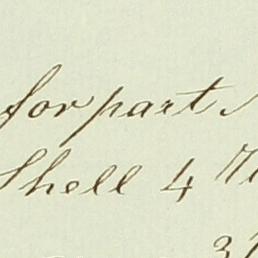 for part
Shell 4